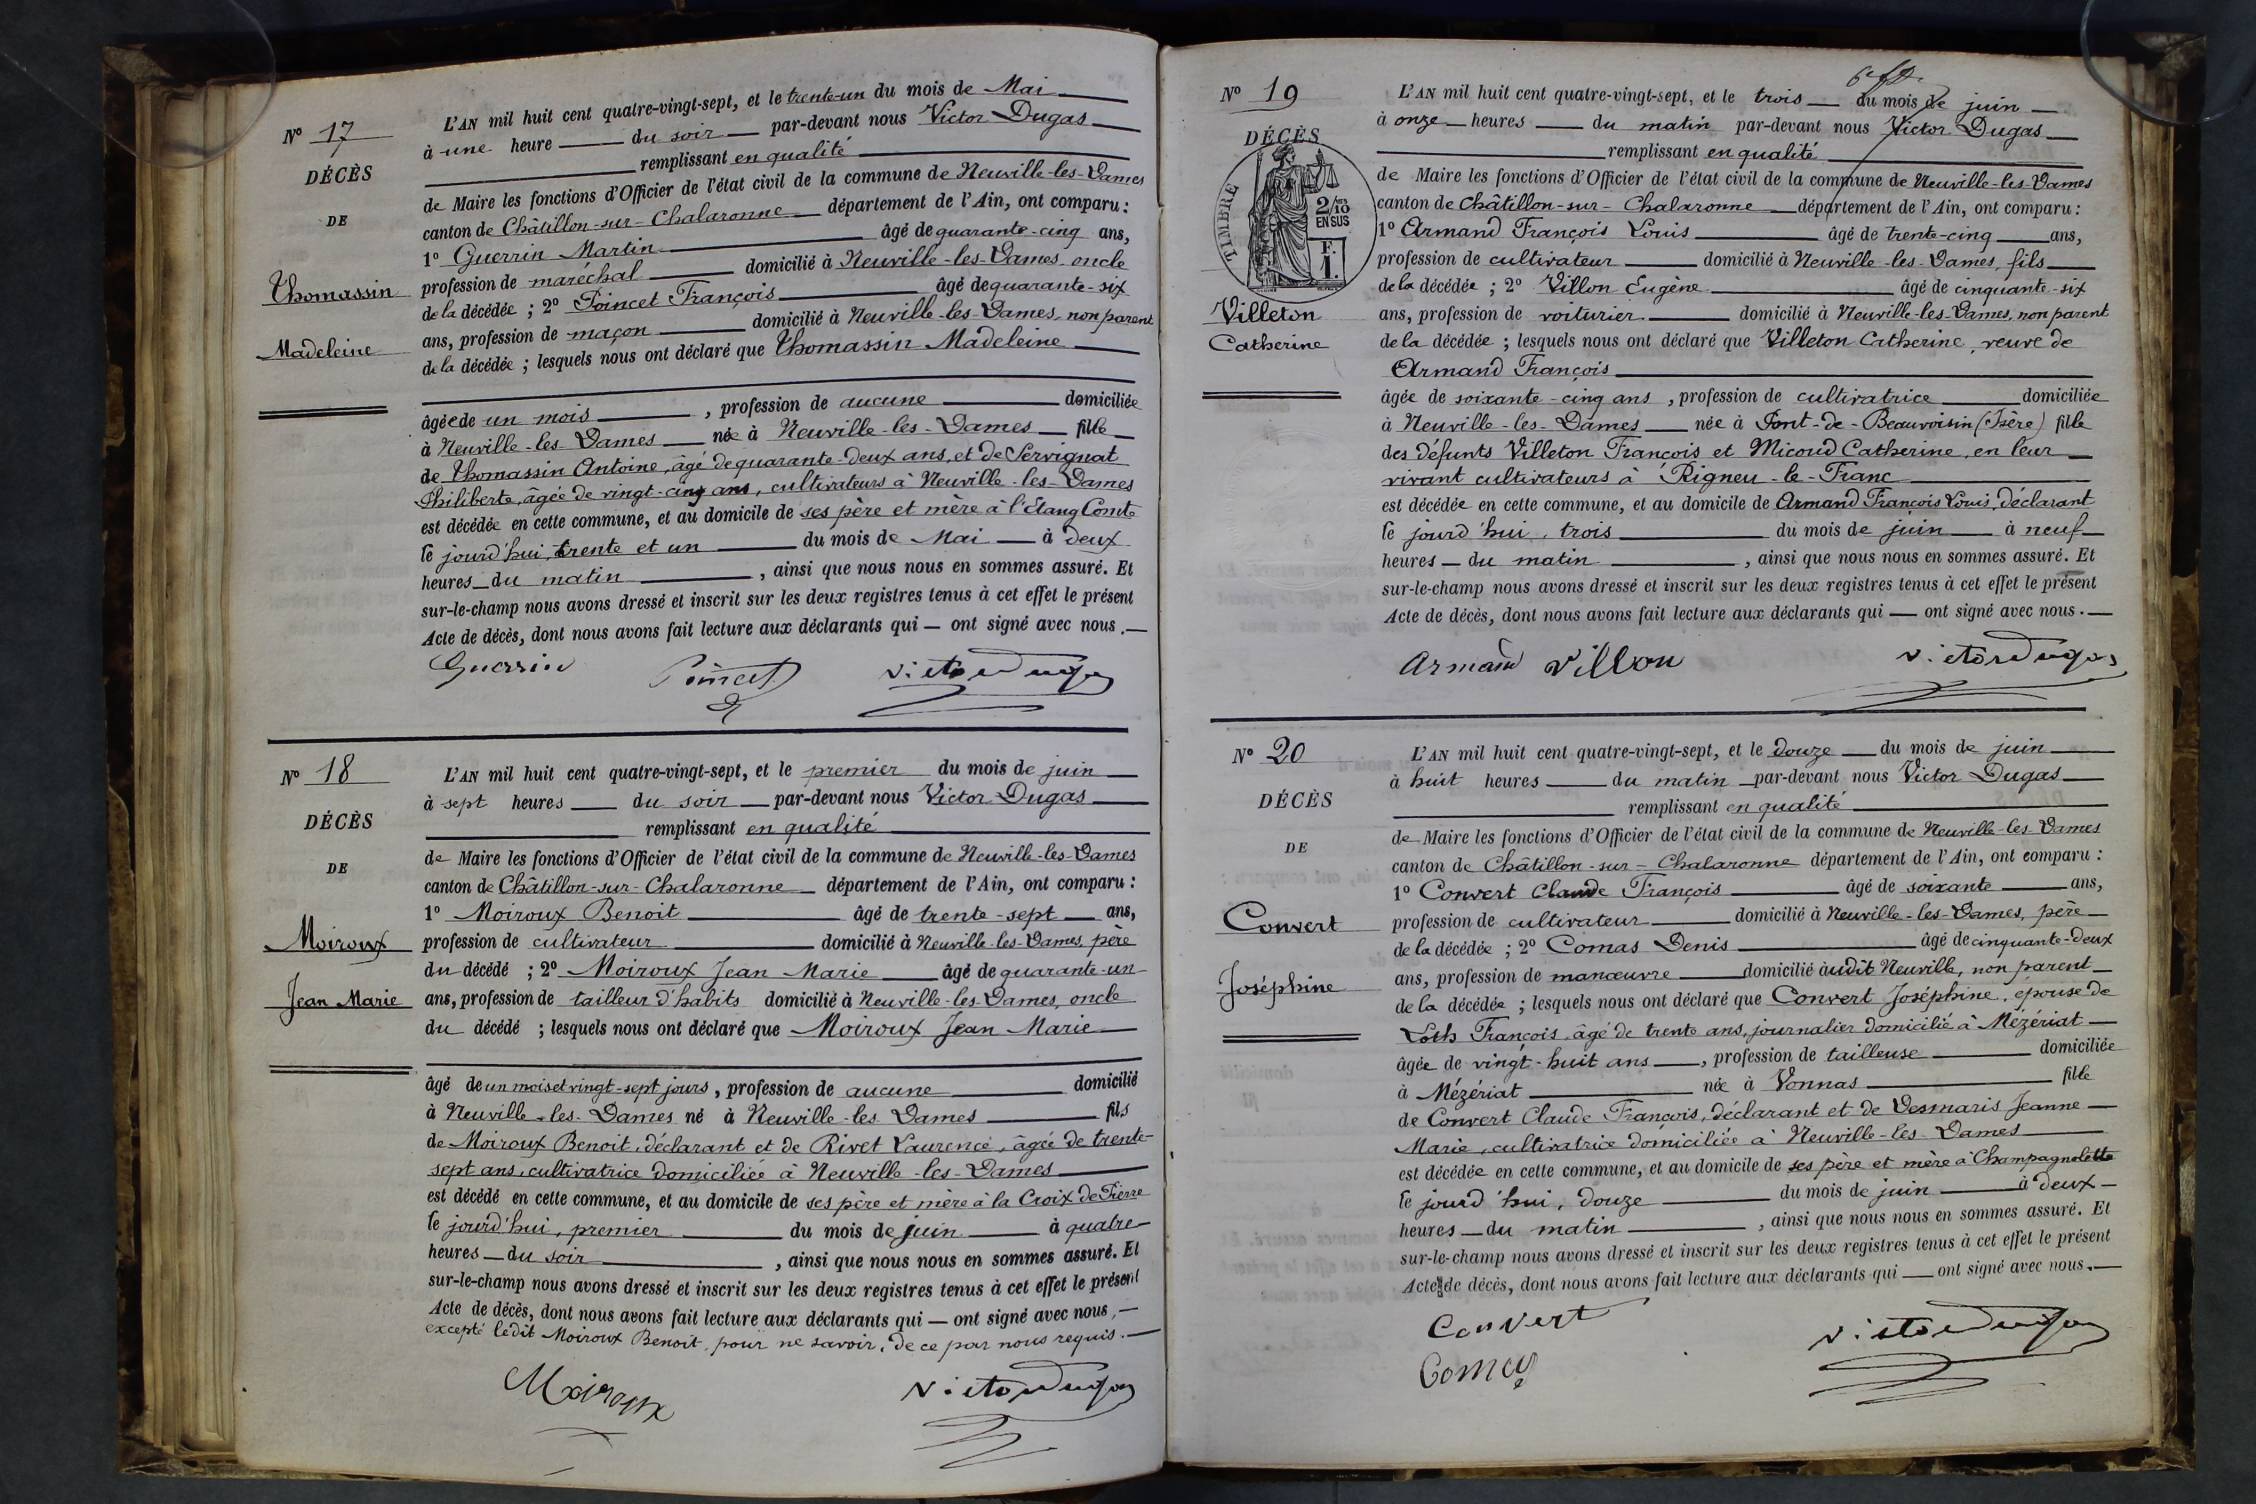 N° 17
DÉCÈS
DE
Thomassin
Madeleine
L'AN mil huit cent quatre-vingt-sept, et le trente-un du mois de Mai
à une heure du soir par-devant nous Victor Dugas
remplissant en qualité
de Maire les fonctions d'Officier de l'état civil de la commune de Neuville-les-Dames
canton de Châtillon-sur-Chalaronne département de l'Ain, ont comparu :
1° Guerrin Martin âgé de quarante-cinq ans,
profession de maréchal domicilié à Neuville-les-Dames, oncle
de la décédée ; 2° Poincet François âgé de quarante-six
ans, profession de maçon domicilié à Neuville-les-Dames, non parent
de la décédée ; lesquels nous ont déclaré que Thomassin Madeleine
âgée de un mois , profession de aucune domiciliée
à Neuville-les-Dames née à Neuville-les-Dames fille
de Thomassin Antoine, âgé de quarante-deux ans, et de Servignat
Philiberte, âgée de vingt-cinq ans, cultivateurs à Neuville-les-Dames
est décédée en cette commune, et au domicile de ses père et mère à l'Etang Comte
le jourd'hui, trente et un du mois de Mai à deux
heures du matin , ainsi que nous nous en sommes assuré. Et
sur-le-champ nous avons dressé et inscrit sur les deux registres tenus à cet effet le présent
Acte de décès, dont nous avons fait lecture aux déclarants qui ont signé avec nous.
Guerrin Poincet Victor Dugas
N° 18
DÉCÈS
DE
Moiroux
Jean Marie
L'AN mil huit cent quatre-vingt-sept, et le premier du mois de juin
à sept heures du soir par-devant nous Victor Dugas
remplissant en qualité
de Maire les fonctions d'Officier de l'état civil de la commune de Neuville-les-Dames
canton de Châtillon-sur-Chalaronne département de l'Ain, ont comparu :
1° Moiroux Benoit âgé de trente-sept ans,
profession de cultivateur domicilié à Neuville-les-Dames, père
du décédé ; 2° Moiroux Jean Marie âgé de quarante-un
ans, profession de tailleur d'habits domicilié à Neuville-les-Dames, oncle
du décédé ; lesquels nous ont déclaré que Moiroux Jean Marie
âgé de un mois et vingt-sept jours, profession de aucune domicilié
à Neuville-les-Dames né à Neuville-les-Dames fils
de Moiroux Benoit, déclarant et de Rivet Laurence, âgée de trente-
sept ans, cultivatrice domiciliée à Neuville-les-Dames
est décédé en cette commune, et au domicile de ses père et mère à la Croix de Pierre
le jourd'hui, premier du mois de juin à quatre
heures du soir , ainsi que nous nous en sommes assuré. Et
sur-le-champ nous avons dressé et inscrit sur les deux registres tenus à cet effet le présent
Acte de décès, dont nous avons fait lecture aux déclarants qui ont signé avec nous,
excepté ledit Moiroux Benoit, pour ne savoir, de ce par nous requis.
Moiroux Victor Dugas
N° 19
DÉCÈS
TIMBRE
2/10
EN SUS
F.
1.
Villeton
Catherine
L'AN mil huit cent quatre-vingt-sept, et le trois du mois de juin
à onze heures du matin par-devant nous Victor Dugas
remplissant en qualité
de Maire les fonctions d'Officier de l'état civil de la commune de Neuville-les-Dames
canton de Châtillon-sur-Chalaronne département de l'Ain, ont comparu :
1° Armand François Louis âgé de trente-cinq ans,
profession de cultivateur domicilié à Neuville-les-Dames, fils
de la décédée ; 2° Villon Eugène âgé de cinquante-six
ans, profession de voiturier domicilié à Neuville-les-Dames, non parent
de la décédée ; lesquels nous ont déclaré que Villeton Catherine, veuve de
Armand François
âgée de soixante-cinq ans , profession de cultivatrice domiciliée
à Neuville-les-Dames née à Pont-de-Beauvoisin (Isère) fille
des défunts Villeton François et Micoud Catherine, en leur
vivant cultivateurs à Rigneu-le-Franc
est décédée en cette commune, et au domicile de Armand François Louis, déclarant
le jourd'hui, trois du mois de juin à neuf
heures du matin , ainsi que nous nous en sommes assuré. Et
sur-le-champ nous avons dressé et inscrit sur les deux registres tenus à cet effet le présent
Acte de décès, dont nous avons fait lecture aux déclarants qui ont signé avec nous.
Armand Villon Victor Dugas
N° 20
DÉCÈS
DE
Convert
Joséphine
L'AN mil huit cent quatre-vingt-sept, et le douze du mois de juin
à huit heures du matin par-devant nous Victor Dugas
remplissant en qualité
de Maire les fonctions d'Officier de l'état civil de la commune de Neuville-les-Dames
canton de Châtillon-sur-Chalaronne département de l'Ain, ont comparu :
1° Convert Claude François âgé de soixante ans,
profession de cultivateur domicilié à Neuville-les-Dames, père
de la décédée ; 2° Comas Denis âgé de cinquante-deux
ans, profession de manœuvre domicilié audit Neuville, non parent
de la décédée ; lesquels nous ont déclaré que Convert Joséphine, épouse de
Loth François, âgé de trente ans, journalier domicilié à Mézériat
âgée de vingt-huit ans , profession de tailleuse domiciliée
à Mézériat née à Vonnas fille
de Convert Claude François, déclarant et de Desmaris Jeanne
Marie, cultivatrice domiciliée à Neuville-les-Dames
est décédée en cette commune, et au domicile de ses père et mère à Champagnolette
le jourd'hui, douze du mois de juin à deux
heures du matin , ainsi que nous nous en sommes assuré. Et
sur-le-champ nous avons dressé et inscrit sur les deux registres tenus à cet effet le présent
Acte de décès, dont nous avons fait lecture aux déclarants qui ont signé avec nous.
Convert Victor Dugas
Comas